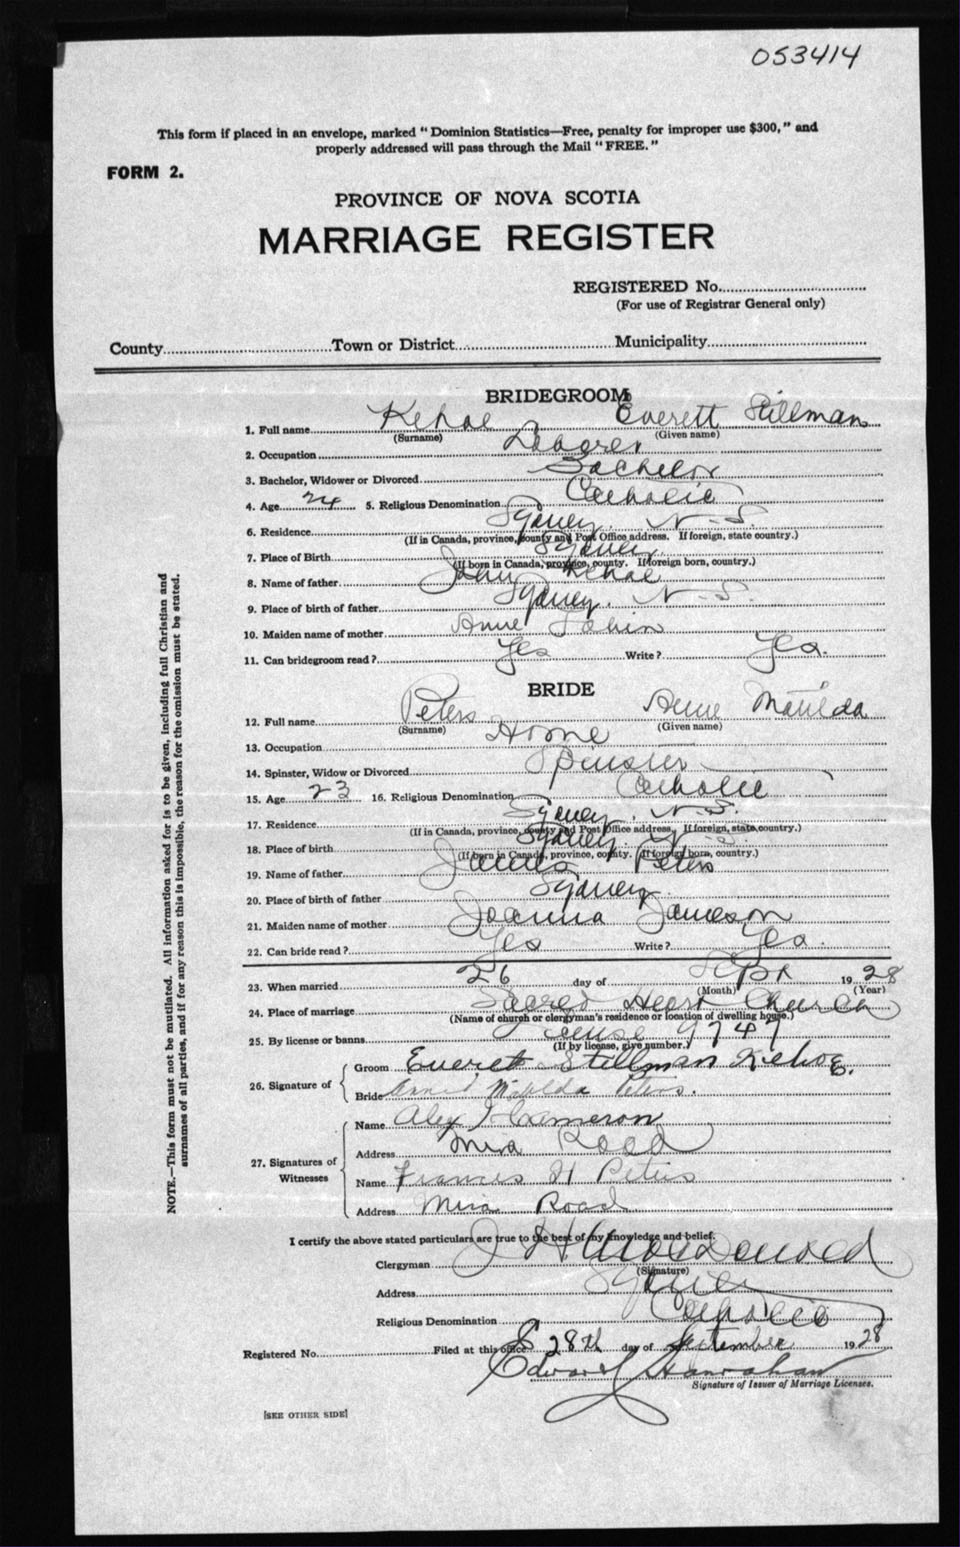 053414
This form if placed in an envelope, marked "Dominion Statistics—Free, penalty for improper use $300," and
properly addressed will pass through the Mail "FREE."
FORM 2.
PROVINCE OF NOVA SCOTIA
MARRIAGE REGISTER
REGISTERED No.
(For use of Registrar General only)
County Town or District Municipality
BRIDEGROOM
1. Full name Kehoe Everett Stillman
(Surname) (Given name)
2. Occupation Laborer
3. Bachelor, Widower or Divorced Bachelor
4. Age 24 5. Religious Denomination Catholic
6. Residence Sydney. N.S.
(If in Canada, province, county and Post Office address. If foreign, state country.)
7. Place of Birth Sydney
(If born in Canada, province, county. If foreign born, country.)
8. Name of father John Kehoe
9. Place of birth of father Sydney. N.S.
10. Maiden name of mother Anne Tobin
11. Can bridegroom read? Yes Write? Yes.
BRIDE
12. Full name Peters Anne Matilda
(Surname) (Given name)
13. Occupation Home
14. Spinster, Widow or Divorced Spinster
15. Age 23 16. Religious Denomination Catholic
17. Residence Sydney. N.S.
(If in Canada, province, county and Post Office address. If foreign, state country.)
18. Place of birth Sydney N.S.
(If born in Canada, province, county. If foreign born, country.)
19. Name of father James Peters
20. Place of birth of father Sydney
21. Maiden name of mother Joanna Jameson
22. Can bride read? Yes Write? Yes.
23. When married 26 day of Sept 1928
(Month) (Year)
24. Place of marriage Sacred Heart Church
(Name of church or clergyman's residence or location of dwelling house.)
25. By license or banns License 9747
(If by license, give number.)
26. Signature of
Groom Everett Stillman Kehoe.
Bride Anne Matilda Peters.
27. Signatures of Witnesses
Name Alex J Cameron
Address Mira Road
Name Frances H Peters
Address Mira Road
I certify the above stated particulars are true to the best of my knowledge and belief.
Clergyman J H MacDonald
(Signature)
Address Sydney
Religious Denomination Catholic
Registered No. Filed at this office 28th day of September 1928
Edward Hanrahan
Signature of Issuer of Marriage Licenses.
[SEE OTHER SIDE]
NOTE.—This form must not be mutilated. All information asked for is to be given, including full Christian and
surnames of all parties, and if for any reason this is impossible, the reason for the omission must be stated.